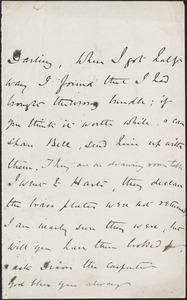 Darling, When I got half
way I found that I had
brought the wrong bundle; if
you think it worth while, & can
spare Bell, send him up with
them. They are on drawing room table
I went to Harts, they declare
the brass plates were not returned
I am nearly sure they were, but
will you have them looked for,
& ask Dixon the carpenter
God bless you always